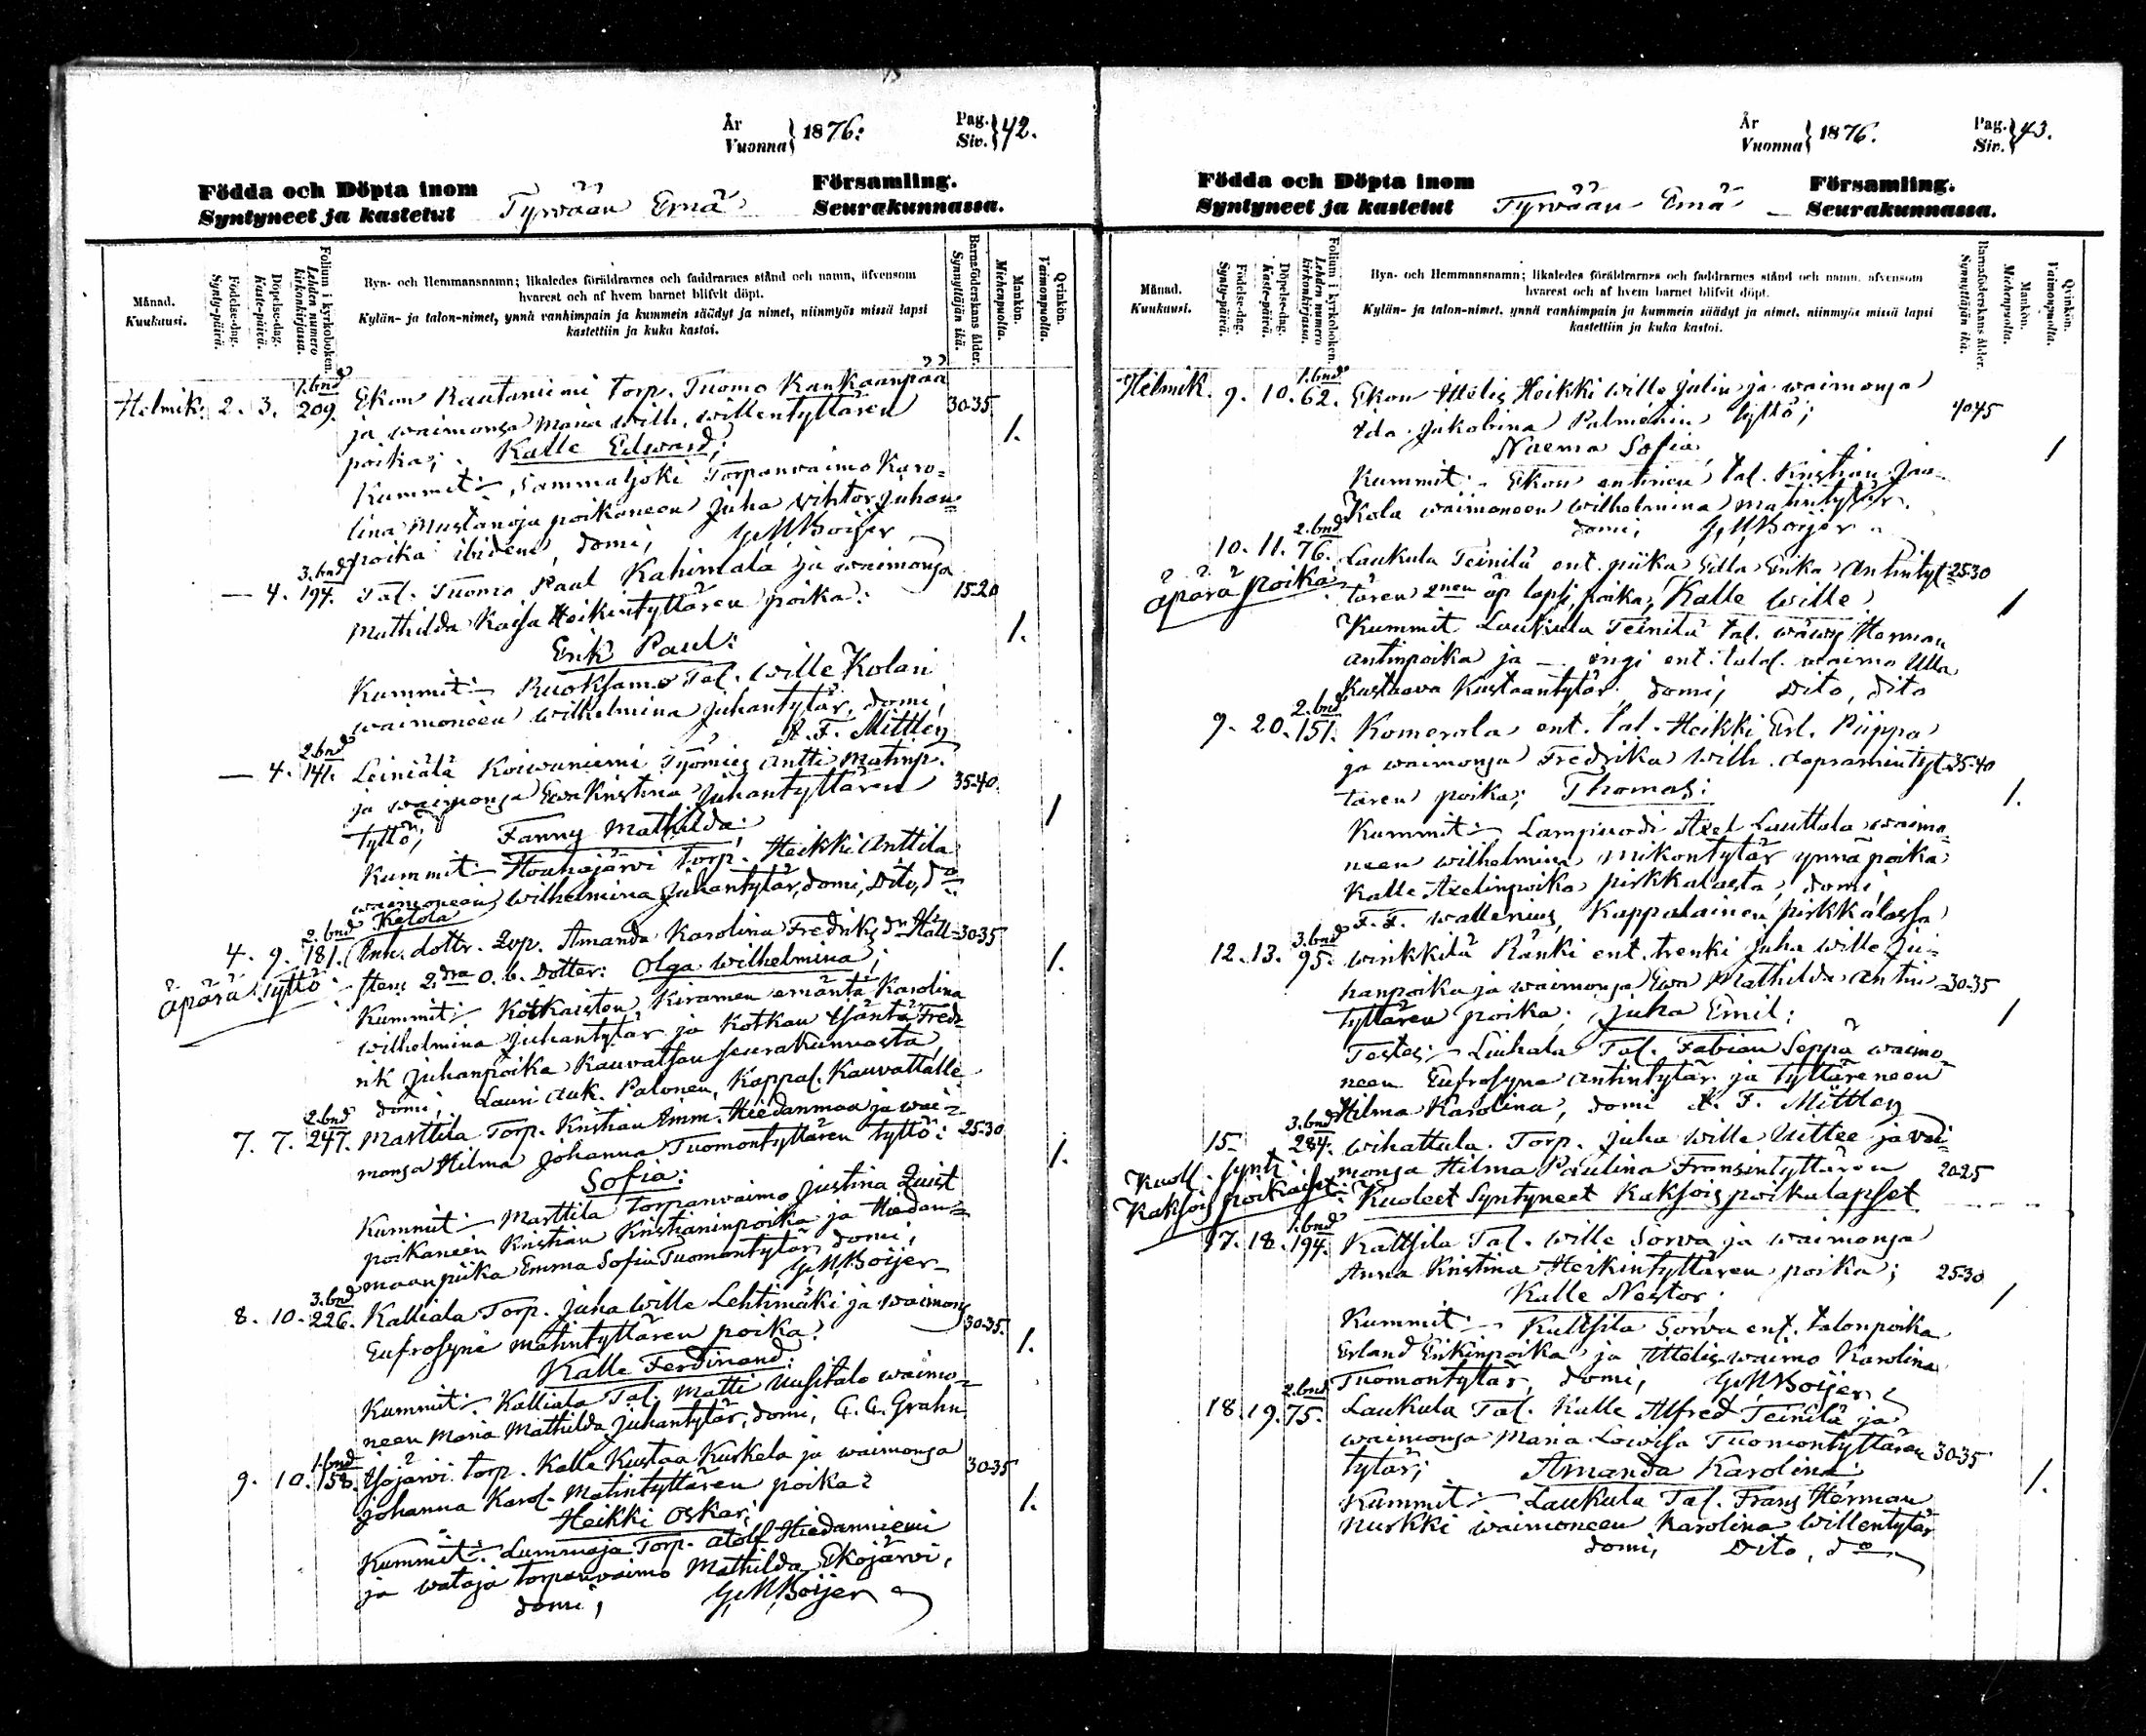 År
Vuonna } 1876: Pag.
Siv. } 42.
Födda och Döpta inom Församling.
Syntyneet ja kastetut Tyrvään Emä Seurakunnassa.
Månad.
Kuukausi.
Födelse-dag.
Synty-päivä.
Döpelse-dag.
Kaste-päivä.
Folium i kyrkoboken.
Lehden numero
kirkonkirjassa.
Byn- och Hemmansnamn; likaledes föräldrarnes och faddrarnes stånd och namn, äfvensom
hvarest och af hvem barnet blifvit döpt.
Kylän- ja talon-nimet, ynnä vanhimpain ja kummein säädyt ja nimet, niinmyös missä lapsi
kastettiin ja kuka kastoi.
Barnaföderskans ålder.
Synnyttäjän ikä.
Mankön.
Miehenpuolta.
Qvinkön.
Vaimonpuolta.
1.bnd
Helmik. 2. 3. 209. Ekon Rautaniemi torp. Tuomo Kankaanpää
ja waimonsa Maria Wilh. Willentyttären 30-35
poika; Kalle Edward; 1.
Kummit:- Sammaljoki Torpanwaimo Karo-
lina Mustanoja poikaneen Juha Vihtor Juhan-
poika ibidem, domi, G.M.Boijer
3.bnd
— 4. 194. Tal. Tuomo Paul Kahimala ja waimonsa
Mathilda Kaisa Heikintyttären poika: 15-20
Erik Paul: 1.
Kummit:- Ruoksamo Tal. Wille Kolari
waimoneen Wilhelmina Juhantytär, domi,
A. F. Mittler
2.bnd
— 4. 141. Leiniälä Koivuniemi Työmies Antti Matinp.
ja waimonsa Ewa Kristina Juhantyttären 35-40.
tyttö; Fanny Mathilda: 1
Kummit:- Houhajärvi torp. Heikki Anttila
waimoneen Wilhelmina Juhantytär, domi, Dito, do
2.bnd Ketola
4. 9. 181. Inh. dottr. 2op. Amanda Karolina Fredriks dr Häll- 30-35
äpärä tyttö stens 2dra o. ä. Dotter: Olga Wilhelmina; 1.
Kummit:- Kotkaisten Kiramen emäntä Karolina
Wilhelmina Juhantytär ja Kotkan Isäntä Fred-
rik Juhanpoika Kauvatsan seurakunnasta
domi, Lauri Auk. Palonen, Kappal. Kauvattalle
2.bnd
7. 7. 247. Marttila Torp. Kristian Imm. Hiedanmaa ja wai-
monsa Hilma Johanna Tuomontyttären tyttö: 25-30
Sofia: 1.
Kummit:- Marttila torpanwaimo Justina Quist
poikaneen Kristian Kristianinpoika ja Hiedan-
maan piika Emma Sofia Tuomontytär, domi,
G.M.Boijer
3.bnd
8. 10. 226. Kalliala Torp. Juha Wille Lehtimäki ja waimons
Eufrosyne Matintyttären poika: 30-35.
Kalle Ferdinand: 1.
Kummit:- Kalliala Tal. Matti Uusitalo waimo-
neen Maria Mathilda Juhantytär, domi, G. A. Grahn
1.bnd
9. 10. 158. Illojärvi torp. Kalle Kustaa Kurkela ja waimonsa
Johanna Karol. Matintyttären poika: 30-35
Heikki Oskar; 1.
Kummit:- Lummaja Torp. Adolf Hiedanniemi
ja wataja torpanwaimo Mathilda Ekojärvi,
domi, G.M.Boijer
År
Vuonna } 1876. Pag.
Siv. } 43.
Födda och Döpta inom Församling.
Syntyneet ja kastetut Tyrvään Emä Seurakunnassa.
Månad.
Kuukausi.
Födelse-dag.
Synty-päivä.
Döpelse-dag.
Kaste-päivä.
Folium i kyrkoboken.
Lehden numero
kirkonkirjassa.
Byn- och Hemmansnamn; likaledes föräldrarnes och faddrarnes stånd och namn, äfvensom
hvarest och af hvem barnet blifvit döpt.
Kylän- ja talon-nimet, ynnä vanhimpain ja kummein säädyt ja nimet, niinmyös missä lapsi
kastettiin ja kuka kastoi.
Barnaföderskans ålder.
Synnyttäjän ikä.
Mankön.
Miehenpuolta.
Qvinkön.
Vaimonpuolta.
1.bnd
Helmik. 9. 10. 62. Ekon Ittelis Heikki Wille Julin ja waimonsa
Ida Jakobina Palmenin tyttö; 40-45
Naema Sofia, 1
Kummit:- Ekon entinen tal. Kristian Jaa-
kola waimoneen Wilhelmina Matintytär.
domi, G.M.Boijer
2.bnd
10. 11. 76. Laukula Teinilä ent. piika Edla Erika Antintyt- 25-30
äpärä poika tären 2nen äp lapsi, poika, Kalle Wille 1
Kummit Laukula Teinilä tal. wäwy Herman
Antinpoika ja — ingi ent. talol. waimo Ulla
Kustaava Kustaantytär, domi, Dito, dito
2.bnd
9. 20. 151. Komerola ent. tal. Heikki Erl. Piippo
ja waimonsa Fredrika Wilh. Aapramintyt- 35-40
tären poika; Thomas: 1.
Kummit:- Lampinodi Axel Lauttala waimo-
neen Wilhelmina Mikontytär ynnä poika
Kalle Axelinpoika Pirkkalasta, domi,
F. F. Wallenius, Kappalainen Pirkkalassa
3.bnd
12. 13. 95. Winkkilä Ränki ent. trenki Juha Wille Ju-
hanpoika ja waimonsa Ewa Mathilda Antin- 30-35
tyttären poika; Juha Emil: 1
Testes:- Liuhala Tal. Fabian Seppä waimo-
neen Eufrosyna Antintytär ja tyttäreneen
Hilma Karolina, domi A. F. Mittler
3.bnd
15 — 284. Wihattula Torp. Juha Wille Uittee ja vai-
Kuoll. synt. monsa Hilma Paulina Fransintyttären 20-25
Kaksois poikaiset: Kuoleet Syntyneet Kaksois poikalapset
1.bnd
17. 18. 194. Kaltsila Tal. Wille Sorva ja waimonsa
Anna Kristina Heikintyttären poika; 25-30
Kalle Nestor: 1
Kummit:- Kaltsila Sorva ent. talonpoika
Erland Erikinpoika ja Ittelis waimo Karolina
Tuomontytär, domi, G.M.Boijer
2.bnd
18. 19. 75. Laukula Tal. Kalle Alfred Teinilä ja
waimonsa Maria Lowisa Tuomontyttären 30-35
tytär; Amanda Karolina: 1.
Kummit:- Laukula Tal. Frans Herman
Nurkki waimoneen Karolina Willentytär
domi, Dito, do